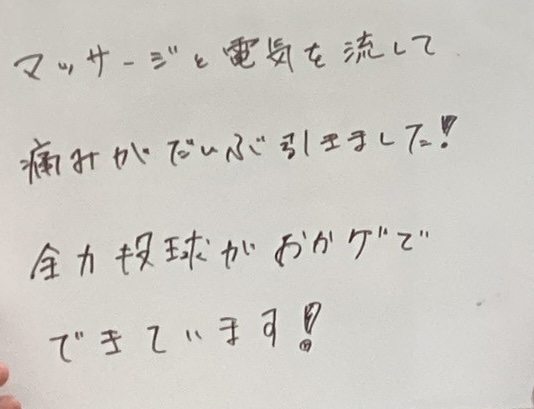 マッサージと電気を流して
痛みがだいぶ引きました!
全力投球がおかゲで
できています!